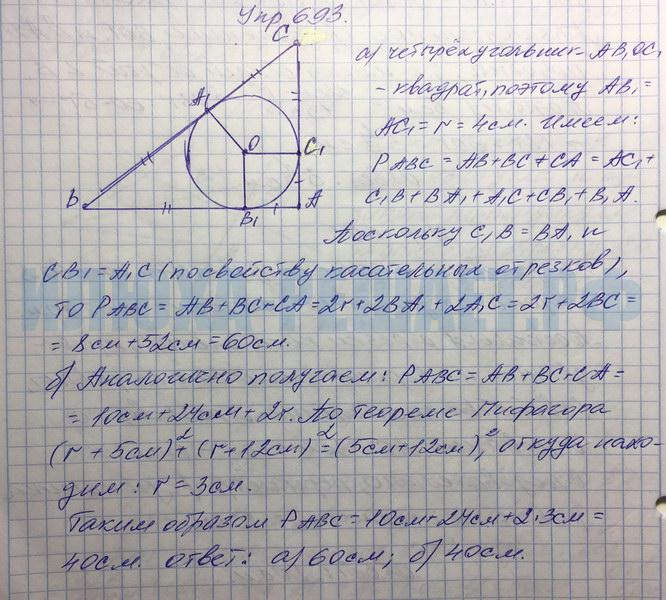 Упр 693.
C
A₁
O
C₁
B
B₁
A
а) четырёхугольник AB₁OC₁
- квадрат, поэтому AB₁ =
AC₁ = r = 4см. Имеем:
PABC = AB + BC + CA = AC₁ +
C₁B + BA₁ + A₁C + CB₁ + B₁A.
Поскольку C₁B = BA₁ и
CB₁ = A₁C (по свойству касательных отрезков),
то PABC = AB + BC + CA = 2r + 2BA₁ + 2A₁C = 2r + 2BC =
= 8см + 52см = 60см.
б) Аналогично получаем: PABC = AB + BC + CA =
= 10см + 24см + 2r. По теореме Пифагора
(r + 5см)² + (r + 12см)² = (5см + 12см)², откуда нахо-
дим: r = 3см.
Таким образом PABC = 10см + 24см + 2·3см =
40см. ответ: а) 60см; б) 40см.